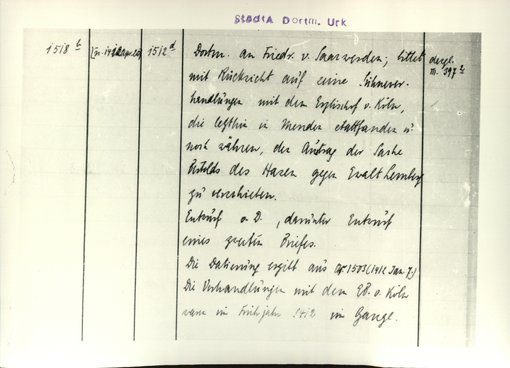 Stadta Dortm. Urk
1518 b
1512 d
Dortm. an Friedr. v. Saarwerden; bittet
mit Rücksicht auf seine Sühnever-
handlungen mit dem Erzbischof v. Köln,
die letzthin in Menden stattfanden u.
noch währen, den Antrag der Sache
des Hasen gegen Ewalt
zu verschieben.
Entwurf o. D., darunter Entwurf
eines zweiten Briefes.
Die Datierung ergibt aus 1503 (1412 Jan. 7.)
Die Verhandlungen mit dem EB. v. Köln
waren im Frühjahr 1412 im Gange.
dergl.
n. 397 a